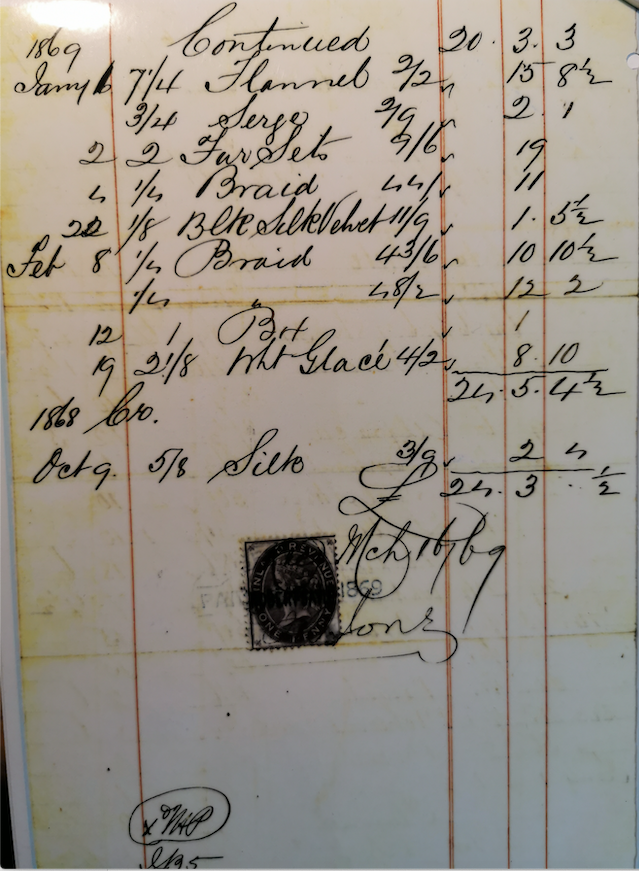 1869 Continued 20. 3. 3
Jany 6 7 1/4 Flannel 2/2 15 8 1/2
3/4 Serge 2/9 2. 1
2 2 Fur Sets 9/6 19
4 1/4 Braid 44/ 11
22 1/8 Blk Silk Velvet 11/9 1. 5 1/2
Feb 8 1/4 Braid 43/6 10 10 1/2
1/4 " 48/2 12 2
12 1 1
19 2 1/8 Wht Glacé 4/2 8. 10
24. 5. 4 1/2
1868 Cr.
Oct 9. 5/8 Silk 3/9 2 4
£ 24. 3 . 1/2
Mch 16/69
INLAND REVENUE
1869
ONE PENNY